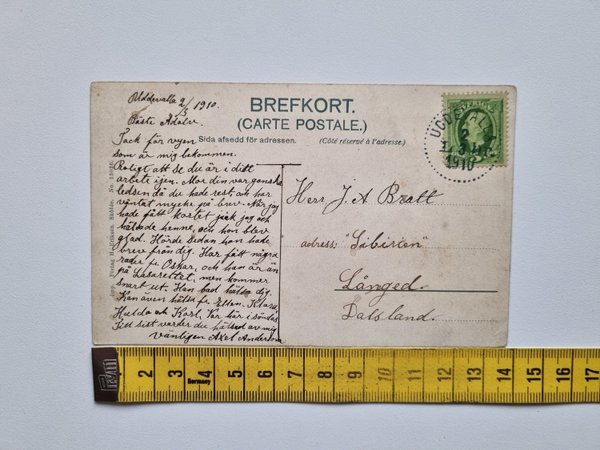 Uddevalla 2/3 1910.
Bäste Adolv.
Tack för vyen
som är mig bekommen.
Roligt att se du är i ditt
arbete igen. Mor din var ganska
ledsen då du hade rest och har
väntat mycke på brev. När jag
hade fått kortet gick jag och
hälsade henne, och hon blev
glad. Hörde sedan hon hade
brev från dig. Har fått några
rader fr Oskar, och han är än
på Lasarettet, men kommer
snart ut. Han bad hälsa dig.
Kan även hälsa fr Ellen. Klara
Hulda och Karl. Var här i söndas
Till sist varder du hälsad av mig
vänligen Axel Anderson
BREFKORT.
(CARTE POSTALE.)
Sida afsedd för adressen. (Côté réservé à l'adresse.)
SVERIGE
UDDEVALLA
2 3
1910
Herr J. A Bratt
adress "Sibirien"
Långed.
Dalsland.
2 3 4 Germany 5 6 7 8 9 10 11 12 13 14 15 16 17